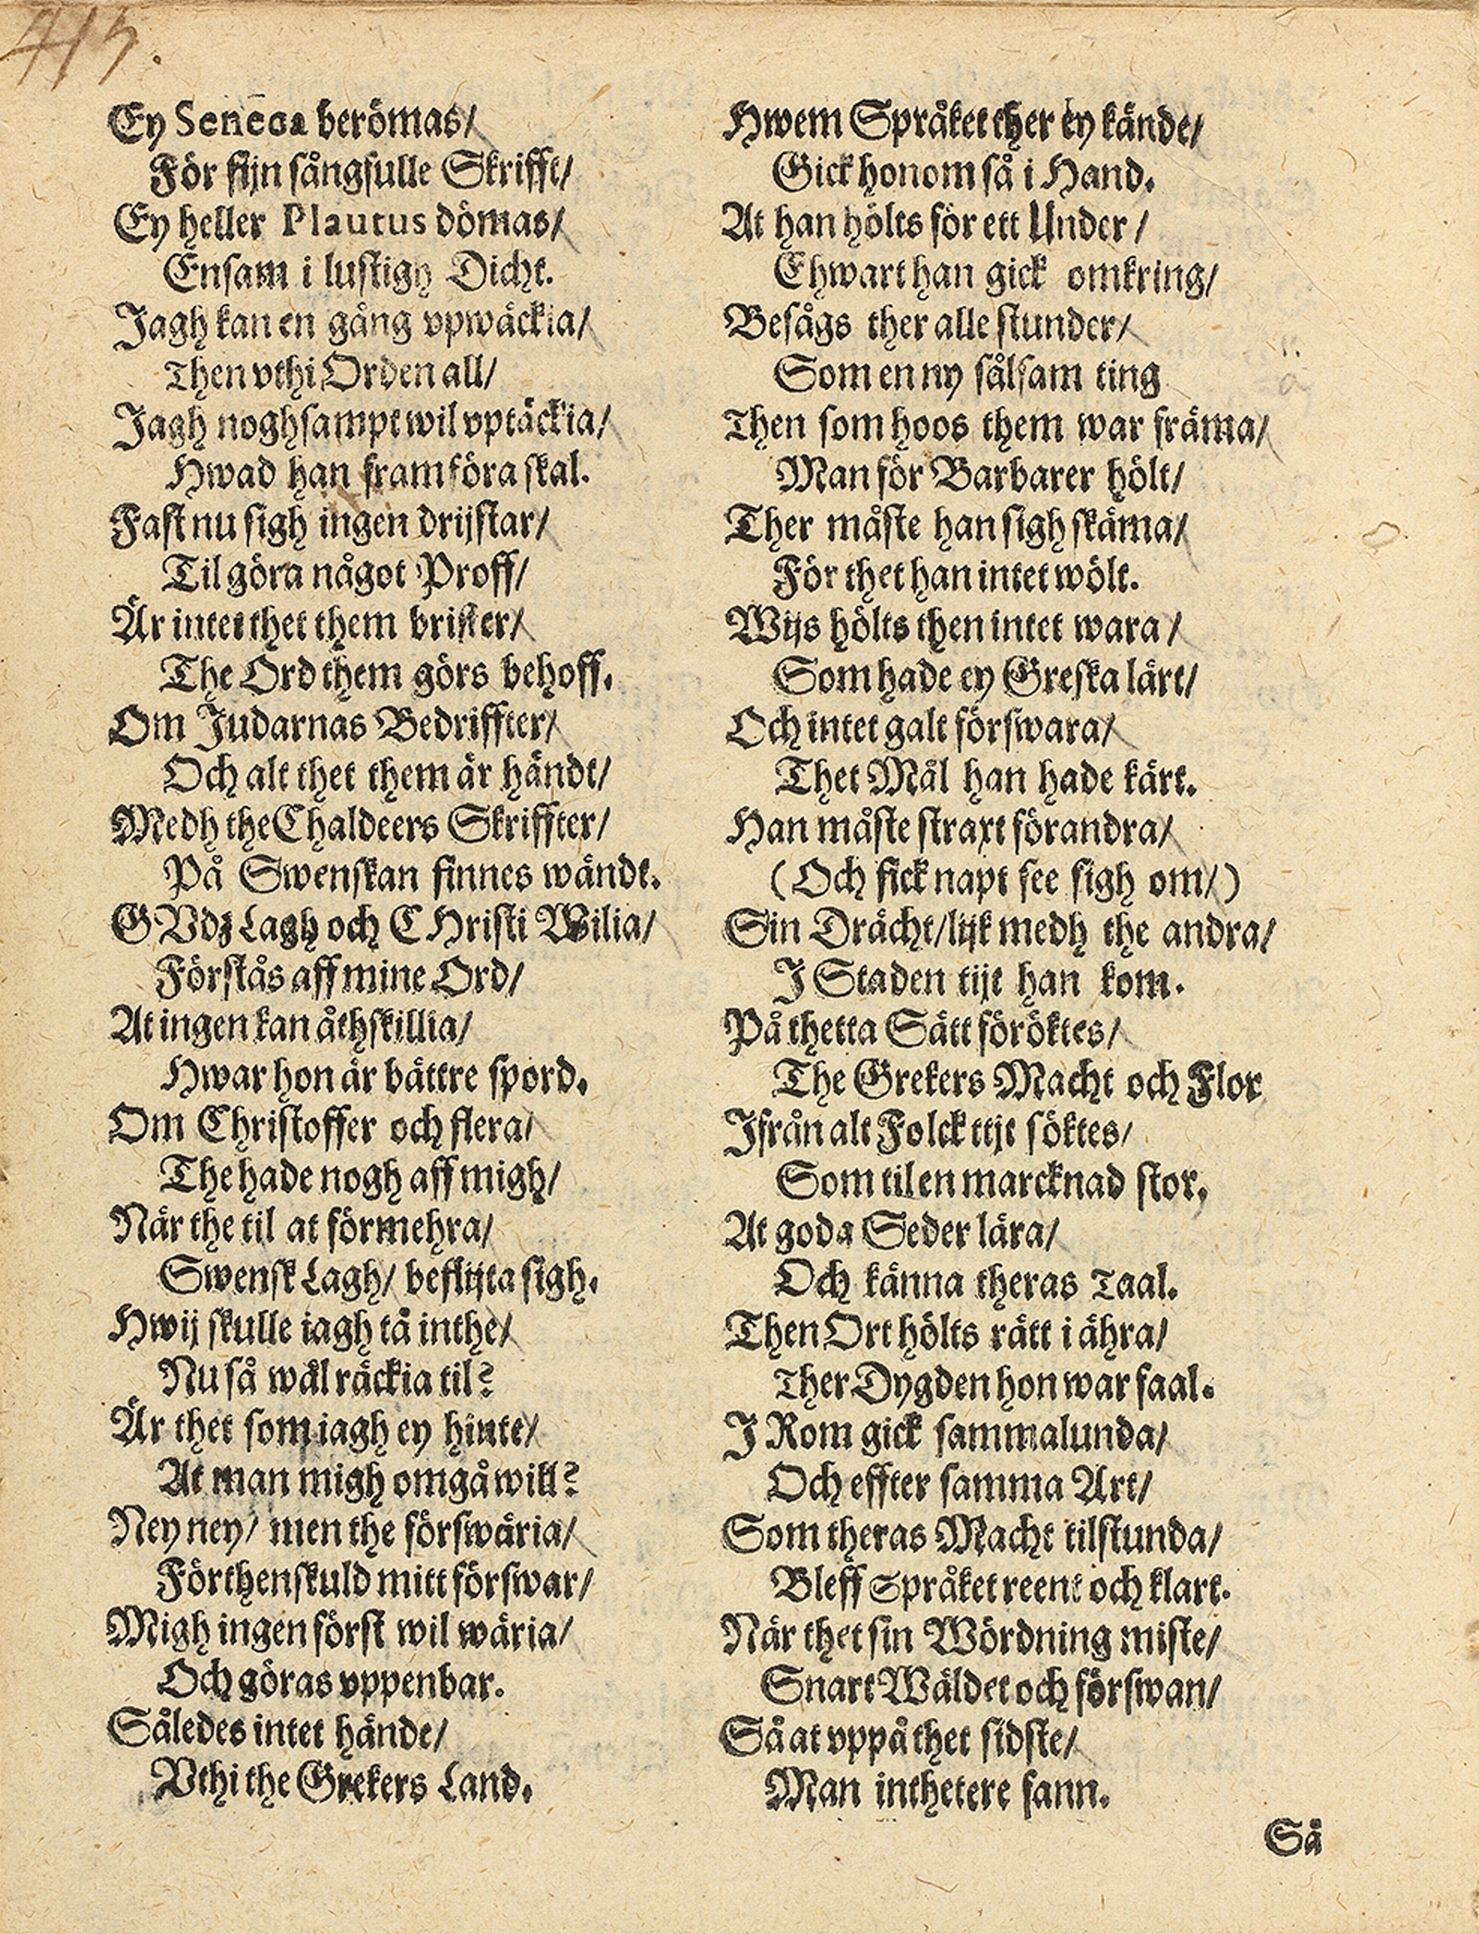 415.
Ey Seneca berömas/
För sijn sångfulle Skrifft/
Ey heller Plautus dömas/
Ensam i lustigh Dicht.
Jagh kan en gång vpwäckia/
Then vthi Orden all/
Jagh noghsampt wil vptäckia/
Hwad han framföra skal.
Fast nu sigh ingen drijstar/
Til göra något Proff/
Är intet thet them brister/
The Ord them görs behoff.
Om Judarnas Bedriffter/
Och alt thet them är händt/
Medh the Chaldeers Skriffter/
På Swenskan finnes wändt.
GVdz Lagh och CHristi Wilia/
Förstås aff mine Ord/
At ingen kan åthskillia/
Hwar hon är bättre spord.
Om Christoffer och flera/
The hade nogh aff migh/
När the til at förmehra/
Swensk Lagh/ beflijta sigh.
Hwij skulle iagh tå inthe/
Nu så wäl räckia til?
Är thet som iagh ey hinte/
At man migh omgå will?
Ney ney/ men the förswäria/
Förthenskuld mitt förswar/
Migh ingen först wil wäria/
Och göras vppenbar.
Således intet hände/
Vthi the Grekers Land.
Hwem Språket ther ey kände/
Gick honom så i Hand.
At han hölts för ett Under/
Ehwart han gick omkring/
Besågs ther alle stunder/
Som en ny sälsam ting
Then som hoos them war främa/
Man för Barbarer hölt/
Ther måste han sigh skäma/
För thet han intet wölt.
Wijs hölts then intet wara/
Som hade ey Greska lärt/
Och intet galt förswara/
Thet Mål han hade kärt.
Han måste straxt förandra/
(Och fick napt see sigh om/)
Sin Drächt/lijk medh the andra/
J Staden tijt han kom.
På thetta Sätt föröktes/
The Grekers Macht och Flor
Jfrån alt Folck tijt söktes/
Som til en marcknad stor,
At goda Seder lära/
Och känna theras Taal.
Then Ort hölts rätt i ähra/
Ther Dygden hon war faal.
J Rom gick sammalunda/
Och effter samma Art/
Som theras Macht tilstunda/
Bleff Språket reent och klart.
När thet sin Wördning miste/
Snart Wäldet och förswan/
Så at vppå thet sidste/
Man inthetere fann.
Så